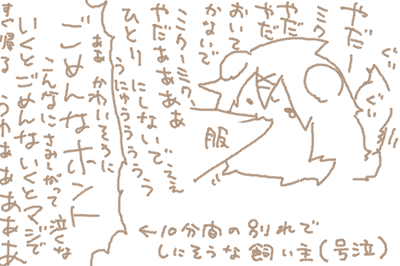 やだー
ミタ
やだ
やだ
おいて
かないで
ぐい
ぐい
ミターミタ、
やだぁぁぁぁ
ひとりにしないでぇぇ
うにゅううううう
服
ああ かわいそうに
ごめんなホント
こんなにさみしがって泣くな
いくとごめんないくとマジで
すぐ帰る うわぁぁぁぁぁ
←10分間の別れで
しにそうな飼い主(号泣)